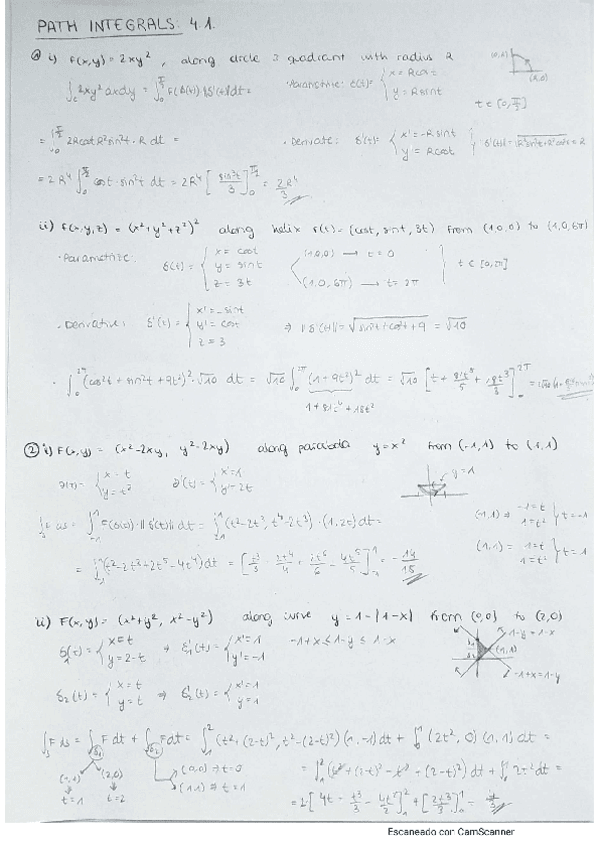 PATH INTEGRALS 4.1.
i) f(x,y) = 2xy², along circle quadrant with radius R
(0,R)
(R,0)
∫ 2xy² dxdy = ∫ f(σ(t)) ‖σ'(t)‖ dt =
· Parametrize: σ(t) = { x = Rcost
y = Rsint
t ∈ [0, π/2]
= ∫ 2Rcost R²sin²t · R dt =
· Derivate: σ'(t) = { x' = -Rsint
y' = Rcost
= 2R⁴ ∫ cost · sin²t dt = 2R⁴ [sin³t/3] = 2R⁴/3
ii) f(x,y,z) = (x²+y²+z²)² along helix σ(t) = (cost, sint, 3t) from (1,0,0) to (1,0,6π)
· Parametrize:
σ(t) = { x = cost
y = sint
z = 3t
(1,0,0) → t = 0
(1,0,6π) → t = 2π
· Derivative: σ'(t) = { x' = -sint
y' = cost
z = 3
⇒ ‖σ'(t)‖ = √(sin²t + cos²t + 9) = √10
· ∫ (cos²t + sin²t + 9t²)² · √10 dt = √10 ∫ (1+9t²)² dt = √10 [t + 81t⁵/5 + 18t³/3]
1 + 81t⁴ + 18t²
② i) F(x,y) = (x²-2xy, y²-2xy) along parabola y = x² from (-1,1) to (1,1)
σ(t) = { x = t
y = t²
σ'(t) = { x' = 1
y' = 2t
y = 1
∫ F ds = ∫ F(σ(t)) · ‖σ'(t)‖ dt = ∫ (t²-2t³, t⁴-2t³) · (1,2t) dt =
(-1,1) ⇒ -1 = t
1 = t² } t = -1
(1,1) = 1 = t
1 = t² } t = 1
= ∫ (t²-2t³+2t⁵-4t⁴) dt = [t³/3 - 2t⁴/4 + 2t⁶/6 - 4t⁵/5] = -14/15
ii) F(x,y) = (x²+y², x²-y²) along curve y = 1-|1-x| from (0,0) to (2,0)
σ₁(t) = { x = t
y = 2-t
⇒ σ₁'(t) = { x' = 1
y' = -1
-1+x ≤ 1-y ≤ 1-x
1-y = 1-x
(1,1)
-1+x = 1-y
σ₂(t) = { x = t
y = t
⇒ σ₂'(t) = { x' = 1
y' = 1
∫ F ds = ∫ F dt + ∫ F dt = ∫ (t²+(2-t)², t²-(2-t)²) (1,-1) dt + ∫ (2t², 0) (1,1) dt =
(1,1)
(2,0)
t = 1
t = 2
(0,0) ⇒ t = 0
(1,1) ⇒ t = 1
Escaneado con CamScanner